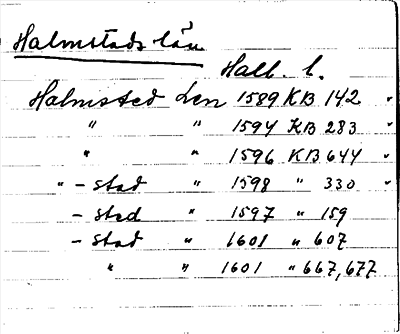 Halmstads län
Hall. l.
Halmsted Len 1589 KB 142 "
" " 1594 KB 283 "
" " 1596 KB 644 "
" - stad " 1598 " 330 "
- sted " 1597 " 159
- stad " 1601 " 607
" " 1601 " 667, 677